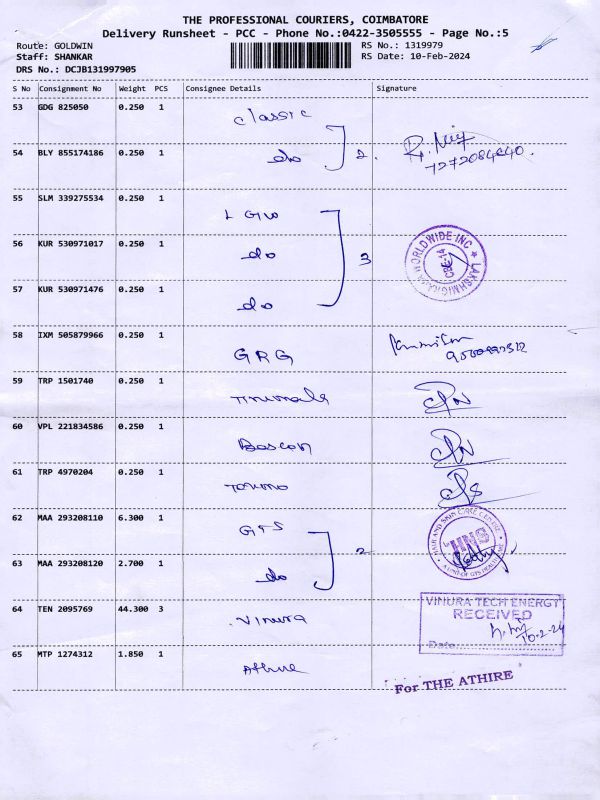 THE PROFESSIONAL COURIERS, COIMBATORE
Delivery Runsheet - PCC - Phone No.:0422-3505555 - Page No.:5
Route: GOLDWIN RS No.: 1319979
Staff: SHANKAR RS Date: 10-Feb-2024
DRS No.: DCJB131997905
S No Consignment No Weight PCS Consignee Details Signature
53 GDG 825050 0.250 1 classic
54 BLY 855174186 0.250 1 do 2.
55 SLM 339275534 0.250 1
56 KUR 530971017 0.250 1 do 3 WORLDWIDE INC ★ CBE-14
57 KUR 530971476 0.250 1 do
58 IXM 505879966 0.250 1 GRG
59 TRP 1501740 0.250 1
60 VPL 221834586 0.250 1 Boscon
61 TRP 4970204 0.250 1
62 MAA 293208110 6.300 1 GTS HAIR AND SKIN CARE CENTRE
63 MAA 293208120 2.700 1 do 2
64 TEN 2095769 44.300 3 Vinura VINURA TECH ENERGY
RECEIVED
10-2-24
Date
65 MTP 1274312 1.850 1 Athire
For THE ATHIRE